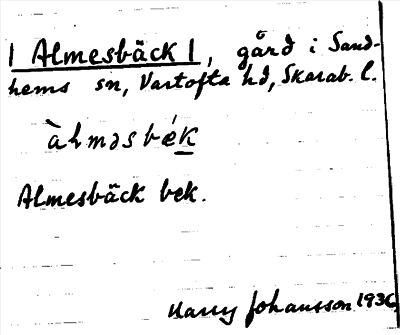 | Almesbäck |, gård i Sand-
hems sn, Vartofta hd, Skarab. l.
àlməsbék
Almesbäck bek.
Harry Johansson 1936